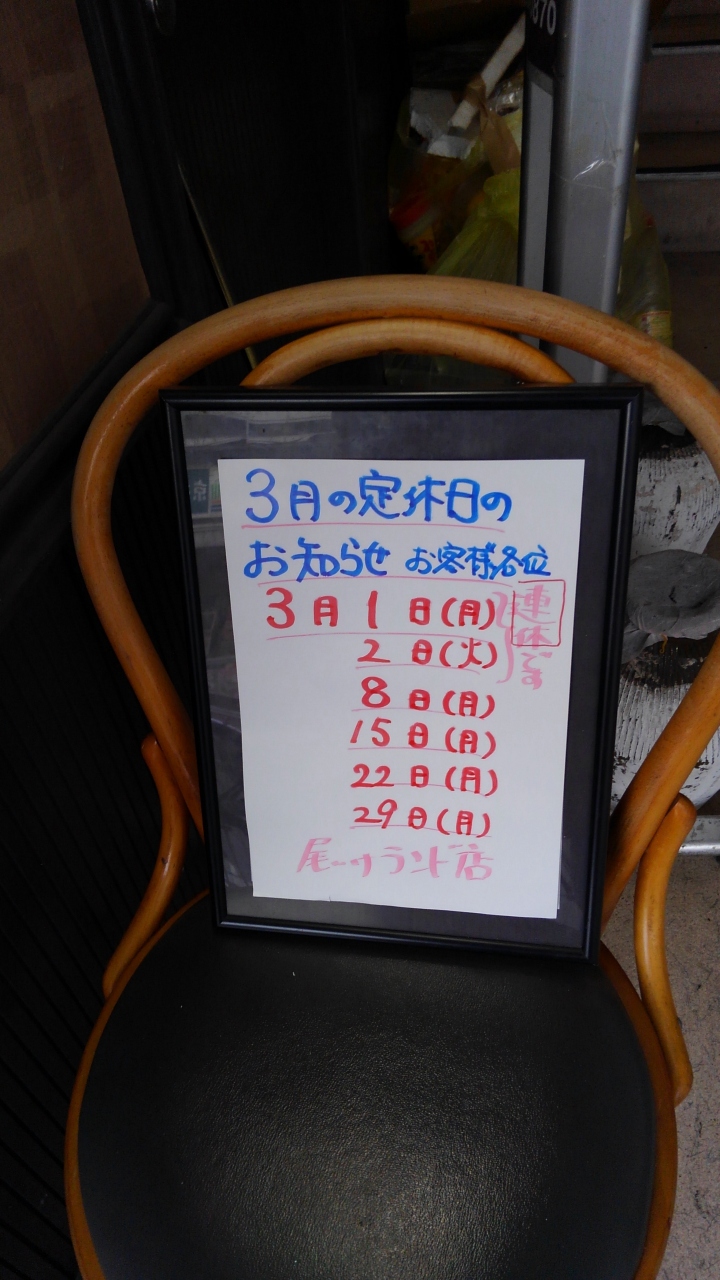 3月の定休日の
お知らせ お客様各位
3月1日(月)
2日(火)
連休です
8日(月)
15日(月)
22日(月)
29日(月)
870
京